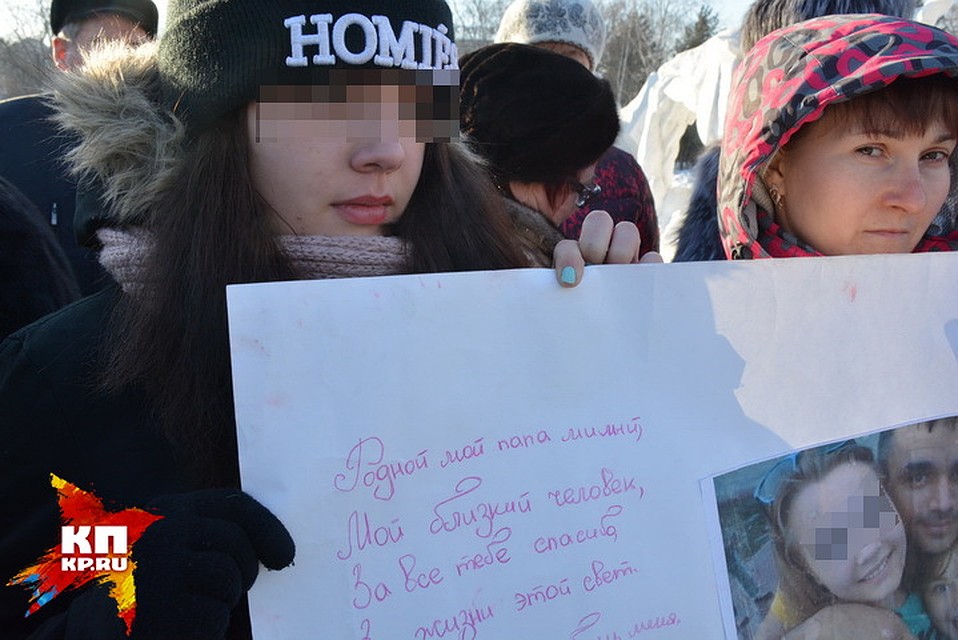 HOMIÈS
Родной мой папа милый,
Мой близкий человек,
За все тебе спасибо,
жизни этой свет.
меня,
КП
KP.RU